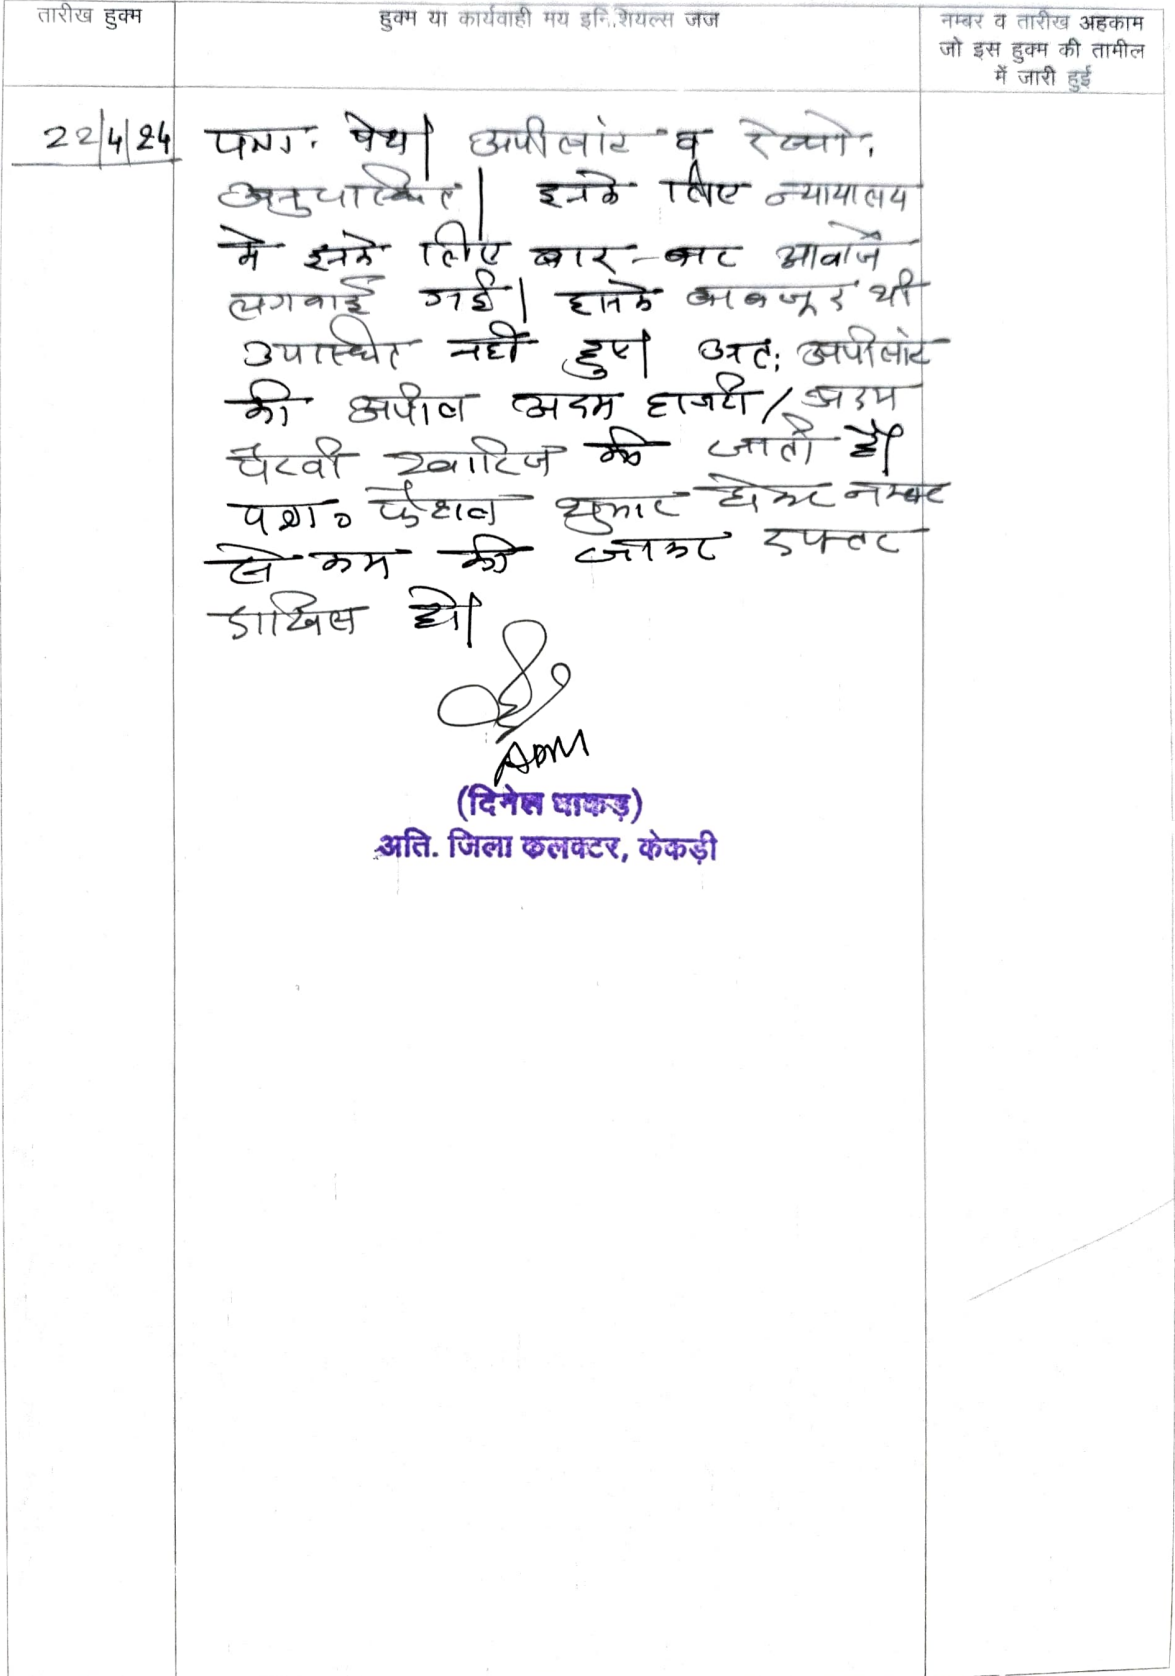 तारीख हुक्म
हुक्म या कार्यवाही मय इनिशियल्स जज
नम्बर व तारीख अहकाम
जो इस हुक्म की तामील
में जारी हुई
22/4/24
पत्रा. पेश। अपीलांट व रेस्पो.
अनुपस्थित। इनके लिए न्यायालय
मे इनके लिए बार-बार आवाजे
लगवाई गई। इसके बावजूद भी
उपस्थित नही हुए। अतः अपीलांट
की अपील अदम हाजरी/अदम
पैरवी खारिज की जाती है।
पत्रा. फैशल शुमार होकर नम्बर
से कम की जाकर दफ्तर
दाखिल हो।
ADM
(दिनेश धाकड़)
अति. जिला कलक्टर, केकड़ी